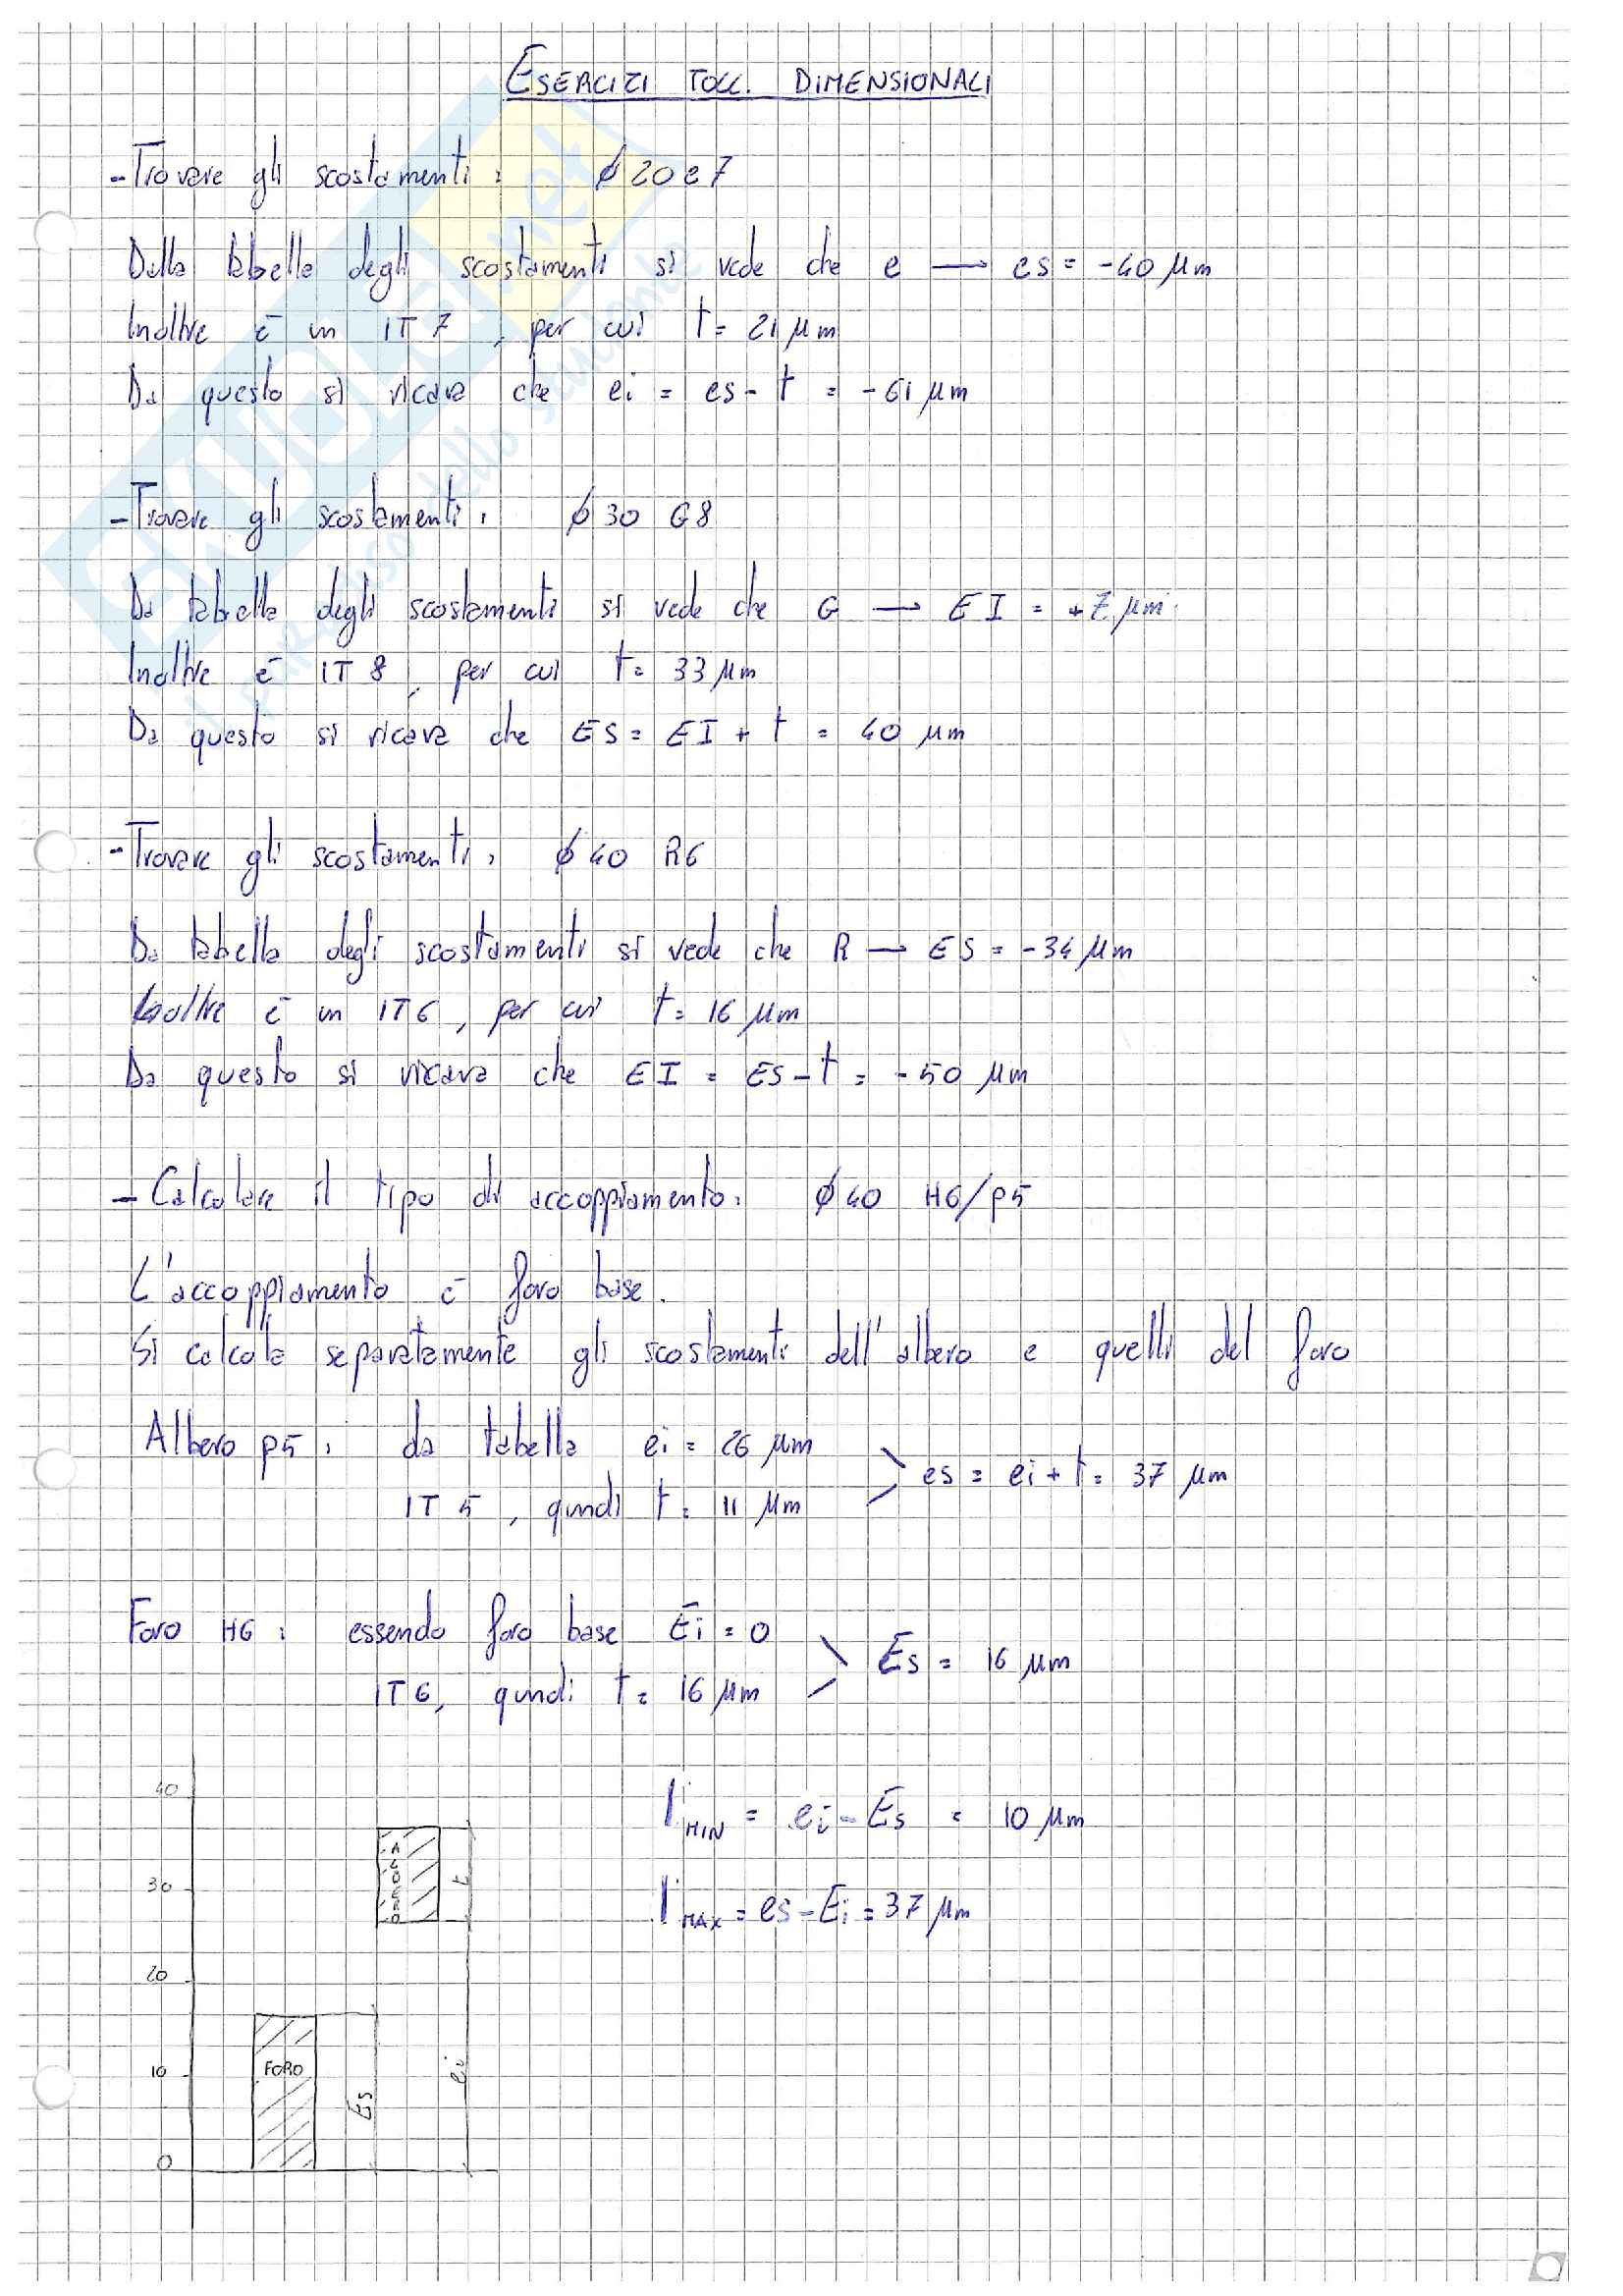 ESERCIZI TOLL. DIMENSIONALI
- Trovare gli scostamenti: ø 20 e7
Dalla tabella degli scostamenti si vede che e → es = -40 μm
Inoltre è un IT 7, per cui t = 21 μm
Da questo si ricava che ei = es - t = -61 μm
- Trovare gli scostamenti: ø 30 G8
Da tabella degli scostamenti si vede che G → EI = +7 μm
Inoltre è IT 8, per cui t = 33 μm
Da questo si ricava che ES = EI + t = 40 μm
- Trovare gli scostamenti: ø 40 R6
Da tabella degli scostamenti si vede che R → ES = -34 μm
Inoltre è un IT6, per cui t = 16 μm
Da questo si ricava che EI = ES - t = -50 μm
- Calcolare il tipo di accoppiamento: ø 40 H6/p5
L'accoppiamento è foro base.
Si calcola separatamente gli scostamenti dell'albero e quelli del foro
Albero p5: da tabella ei = 26 μm
es = ei + t = 37 μm
IT 5, quindi t = 11 μm
Foro H6: essendo foro base Ei = 0
Es = 16 μm
IT6, quindi t = 16 μm
40
30
20
10
0
FORO
Es
ei
t
I MIN = ei - Es = 10 μm
I MAX = es - Ei = 37 μm
SKUOLA.net
il paradiso dello studente